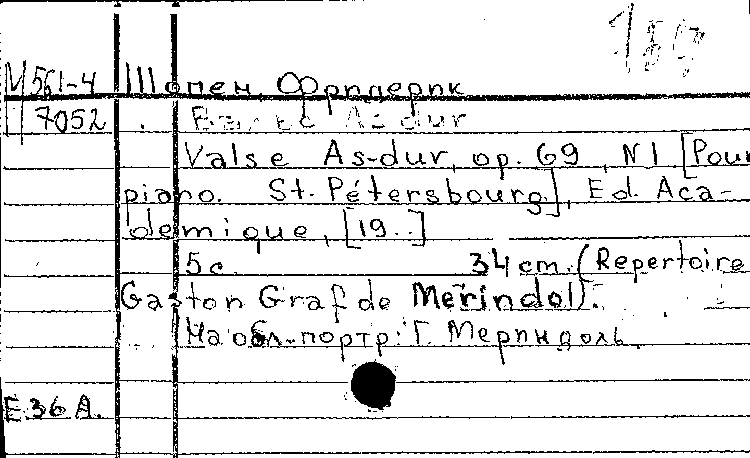 М561-4 Шопен, Фридерик
7052 Вальс As-dur
Valse As-dur, op. 69, N1 [Pour
piano. St. Pétersbourg], Ed. Aca-
demique, [19..]
5 с. 34 cm. (Repertoire
Gaston Graf de Merindol).
На обл.-портр: Г. Мериндоль.
E.36 A.